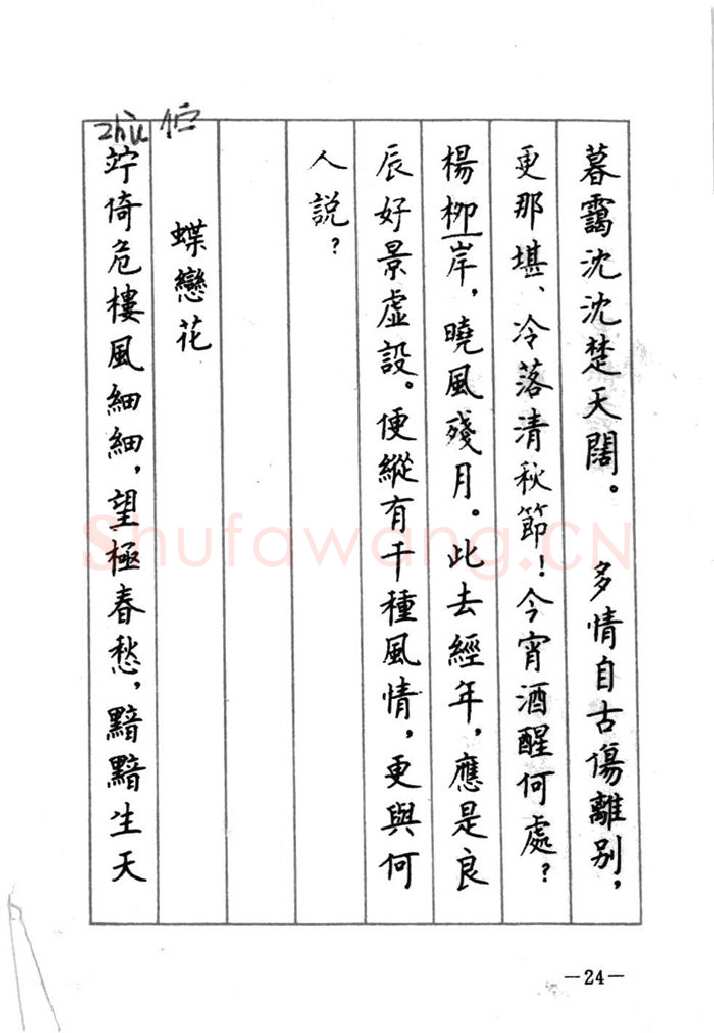 暮靄沈沈楚天闊。 多情自古傷離别，
更那堪、冷落清秋節！今宵酒醒何處？
楊柳岸，曉風殘月。此去經年，應是良
辰好景虛設。便縱有千種風情，更與何
人説？
蝶戀花
zhù 佇
竚倚危樓風細細，望極春愁，黯黯生天
Shufawang.CN
—24—